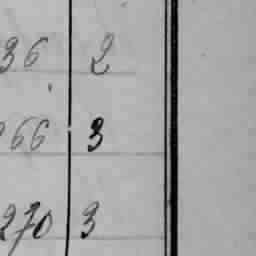 36 2
266 3
270 3